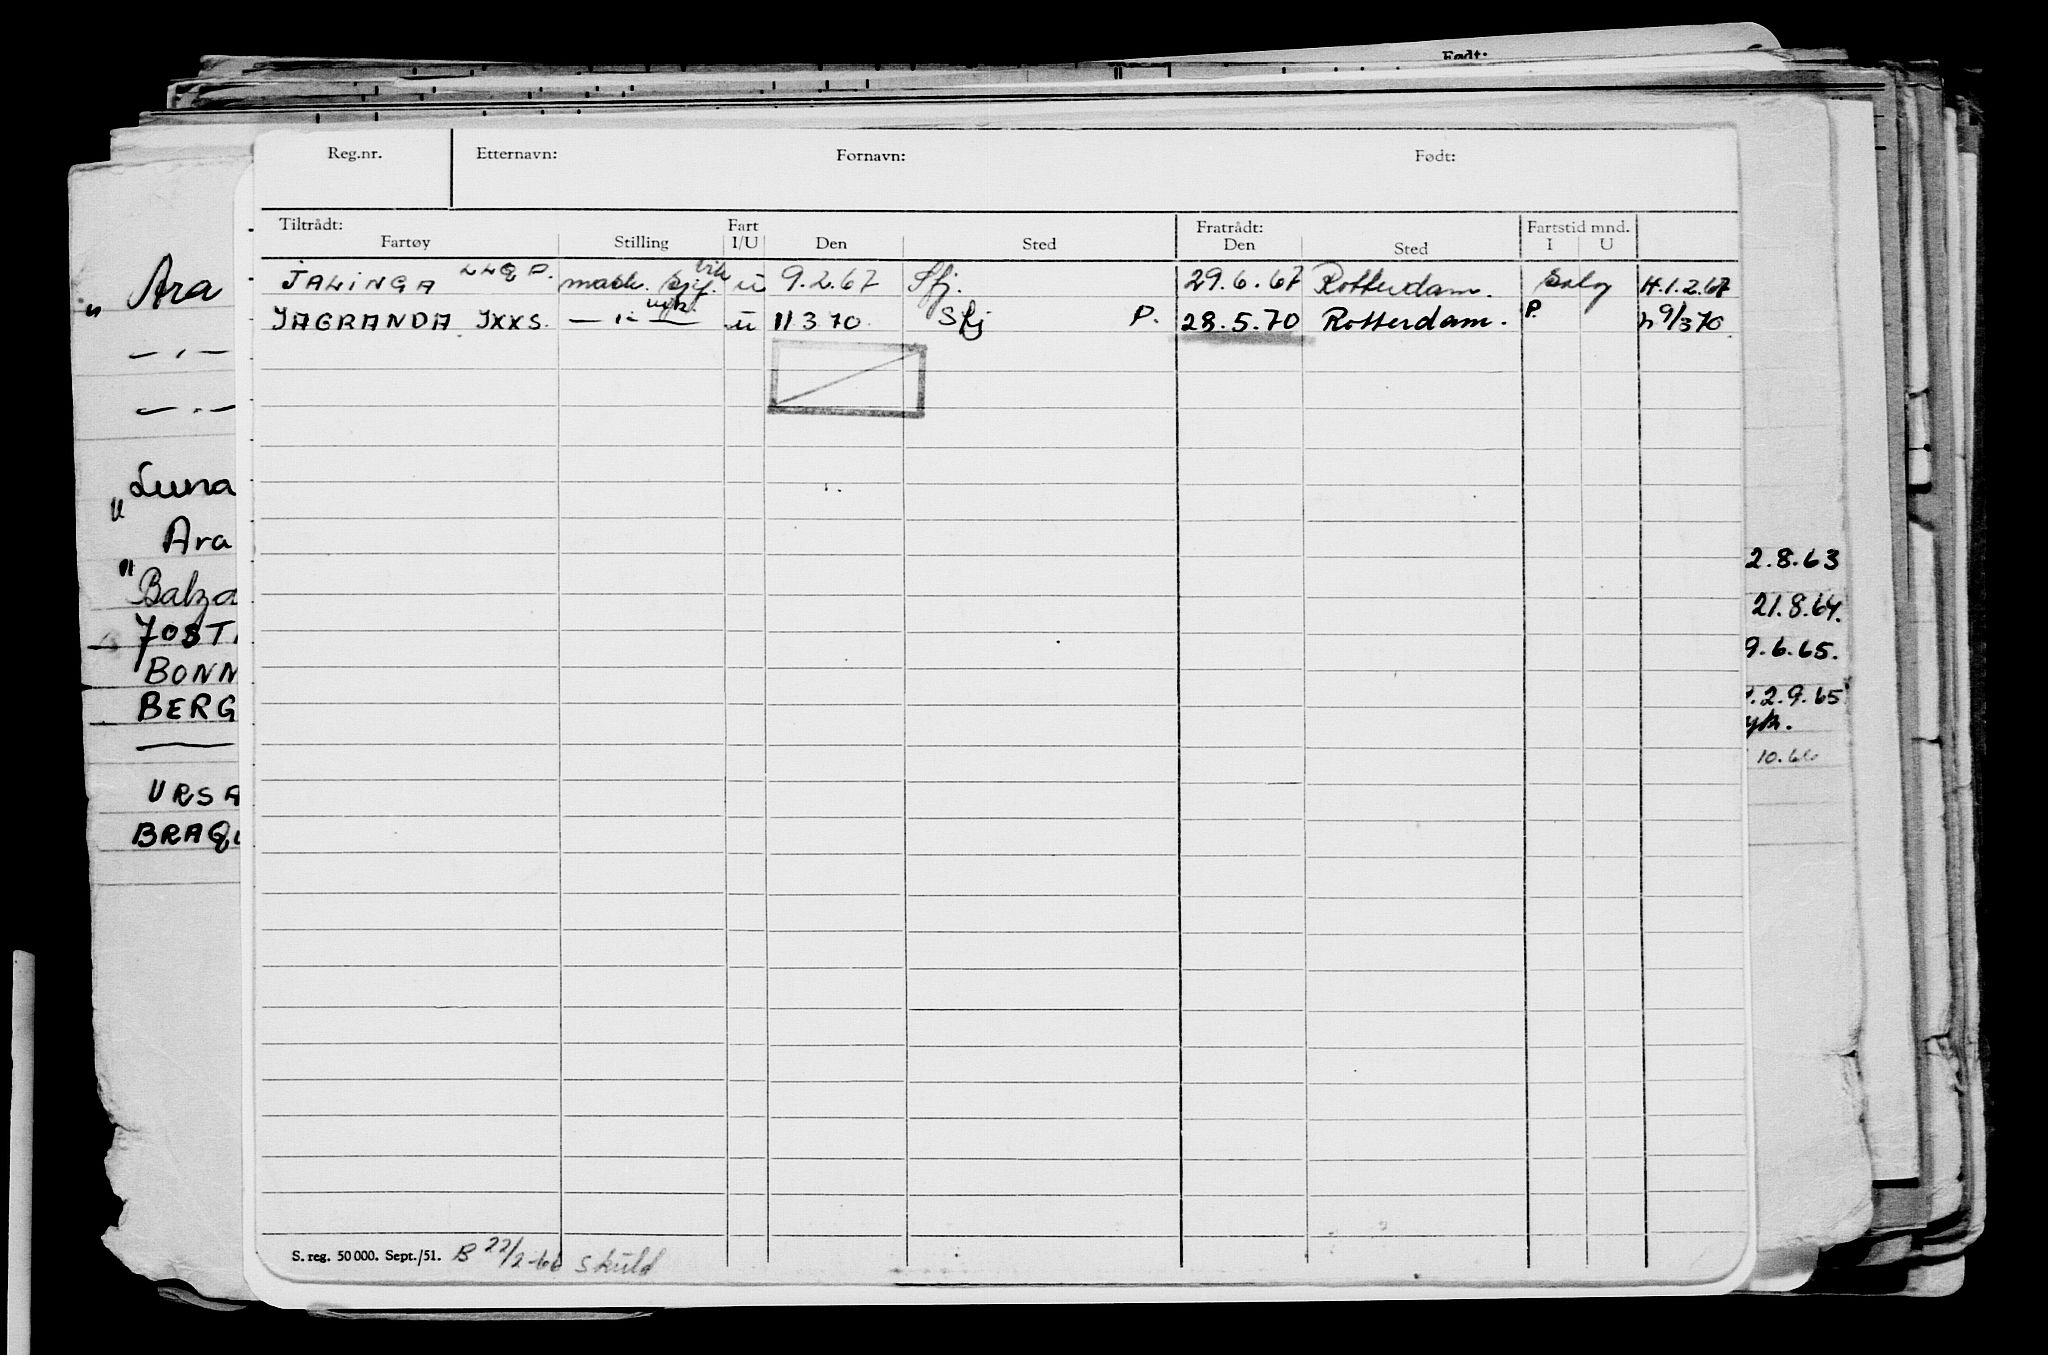 Født:
Reg.nr. Etternavn: Fornavn: Født:
Tiltrådt: Fart Fratrådt: Fartstid mnd.
Fartøy Stilling I/U Den Sted Den Sted I U
JALINGA LLQP. mask. sjef. vik u 9.2.67 Sfj. 29.6.67 Rotterdam. Salg H.1.2.67
JAGRANDA JXXS. — " — vik. u 11 3 70 Sfj P. 28.5.70 Rotterdam. P. h 9/3 70
" Ara
— " —
— " —
" Luna
Ara
" Balza
JOST
BONN
BERG
—
URSA
BRAQU
2.8.63
21.8.64.
9.6.65.
2.9.65
10.66
S. reg. 50 000. Sept./51. B 22/2-66 Skuld